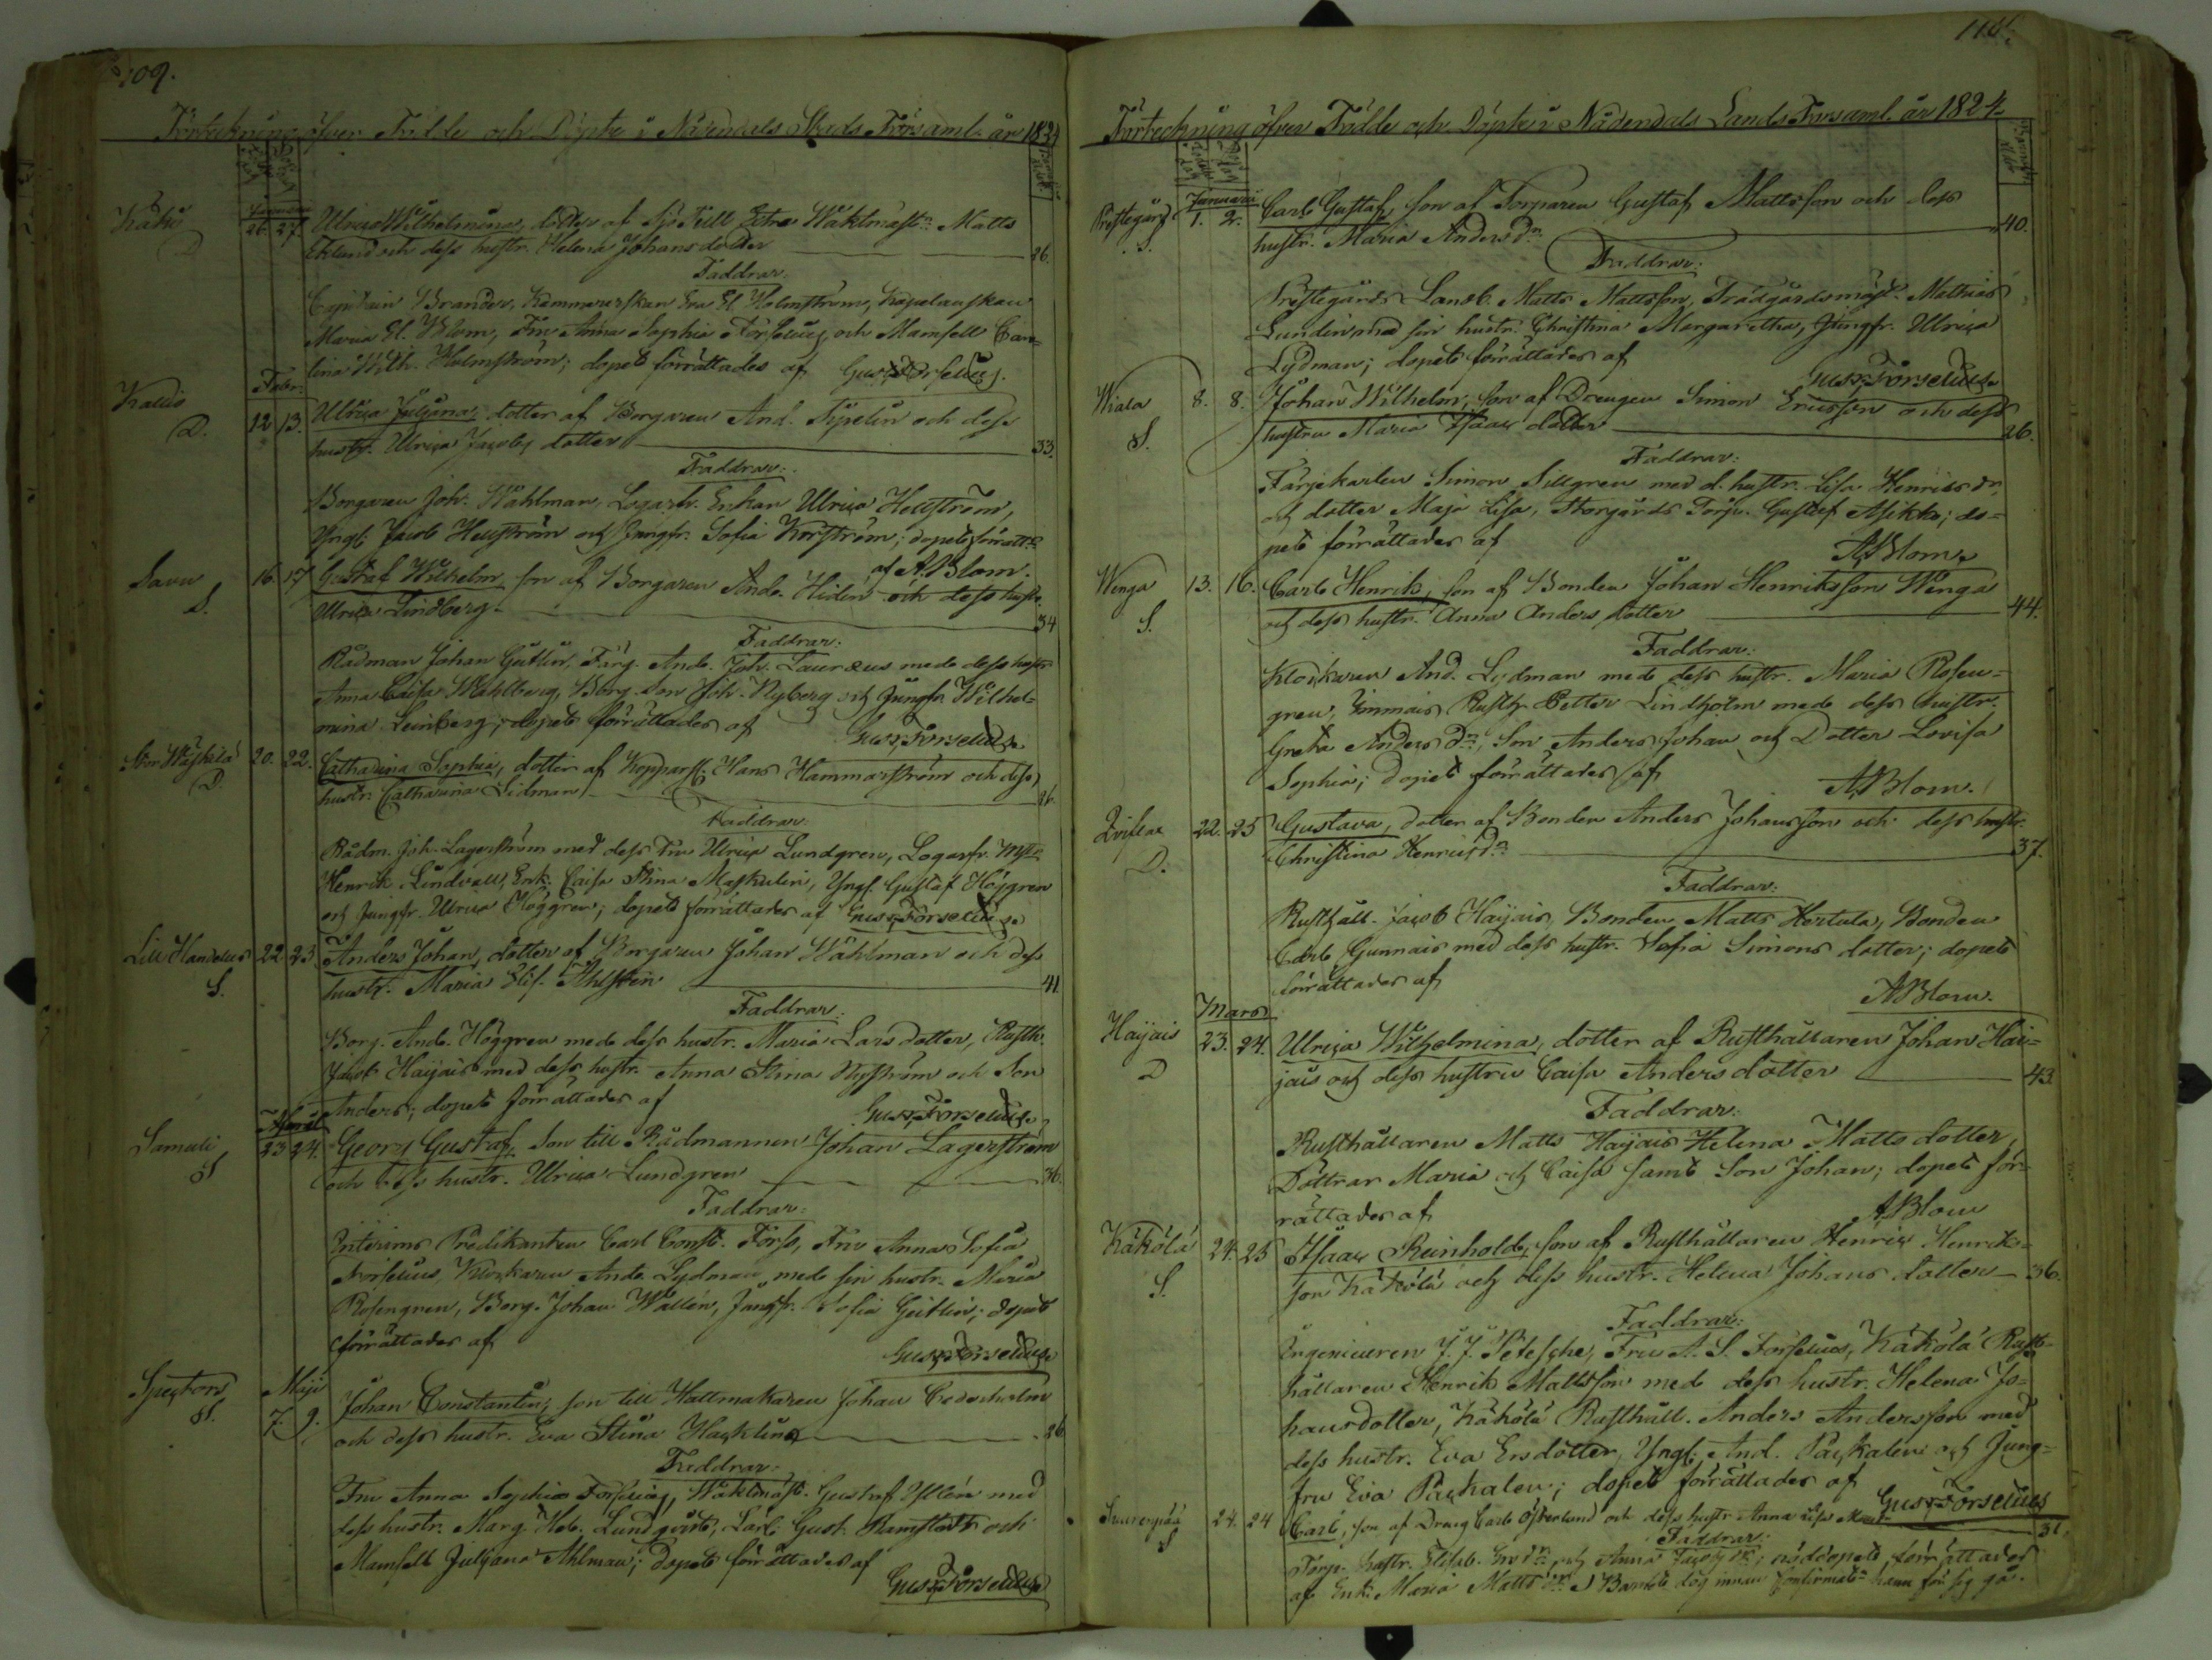 109.
Förteckning öfver Födde och Döpte i Nådendals Stads Församl. år 1824
26. 27. Ulrica Wilhelmina, dotter af Sjö Tull Extra Waktmäst:n Matts
D Eklund och dess hustr. Helena Johansdotter 26.
Faddrar:
Capitain Brander, Kammererskan Eva El Holmström, Kapelanskan
Maria El. Blom, Fru Anna Sophia Forselius och Mamsell Caro-
lina Wilh. Holmström; dopet förrättades af Gust. Forselius.
Febr:
12 13. Ulrica Juliana dotter af Borgaren And. och dess
D. hustr. Ulrica Jacobs dotter 33.
Faddrar:
Borgaren Joh. Wåhlman, Enkan Ulrica Hellström,
Yngl. Jacob Hellström och Jungfr. Sofia Korström; dopet förrätt:s
af A. Blom.
16. 17 Gustaf Wilhelm, son af Borgaren And. Hidén och dess hustr.
S. Ulrica Lindberg 34
Faddrar:
Rådman Johan Geitlin, Färg. And. Joh. Lauræus med dess hustr.
Anna Caisa Wahlberg, Borg. Son Joh. Nyberg och Jungfr. Wilhel-
mina Leinberg; dopet förrättades af Gust. Forselius
20. 22. Catharina Sophia, dotter af Kopparsl. Hans Hammarström och dess
D. hustr. Catharina Lidman 26.
Faddrar:
Rådm. Joh. Lagerström med dess Fru Ulrica Lundgren,
Henrik Lindvall, Enk. Caisa Stina Maskulin, Yngl. Gustaf Höggren
och Jungfr. Ulrica Höggren; dopet förrättades af Gust. Forselius
Lill Handelus 22 23 Anders Johan, dotter af Borgaren Johan Wåhlman och dess
S. hustr. Maria Elis. Åhlsten 41.
Faddrar:
Borg. And. Höggren med dess hustr. Maria Larsdotter, Rusth.
Jacob Haijais med dess hustr. Anna Stina Nyström och Son
Anders; dopet förrättades af Gust. Forselius
April
Samuli 23 24. Georg Gustaf, Son till Rådmannen Johan Lagerström
S och dess hustr. Ulrica Lundgren 36.
Faddrar:
Interims Predikanten Carl Const. Forss, Fru Anna Sofia
Forselius, Klockaren And. Lydman med sin hustr. Maria
Rosengren, Borg. Johan Wallén, Jungfr. Sofia Geitlin; dopet
förrättades af Gust. Forselius
Maji
7. 9. Johan Constantin, son till Hattmakaren Johan Cederholm
S. och dess hustr. Eva Stina Hacklin 26
Faddrar:
Fru Anna Sophia Forselius, Waktmäst. Gustaf med
dess hustr. Marg. Heb. Lundqvist, Gust. Ramstedt och
Mamsell Juliana Ahlman; dopet förrättades af
Gust. Forselius
110.
Förteckning öfver Födde och Döpte i Nådendals Lands Församl. år 1824
Januari
Prestegård 1. 2. Carl Gustaf, son af Torparen Gustaf Mattsson och dess
S. hustr. Maria Anders d:r 40.
Faddrar:
Prestegårds Lanb. Matts Mattsson, Trädgårdsmäst. Mathias
Lundin med sin hustr. Christina Margaretha, Jungfr. Ulrica
Lydman; dopet förrättades af Gust. Forselius
Wiala 8. 8. Johan Wilhelm, son af Drengen Simon Ericsson och dess
S. hustru Maria Isaacs dotter 26.
Faddrar:
Färjekarlen Simon Sillgren med d. hustr. Lisa Henrics d:r
och dotter Maja Lisa, Storgårds Torp. Gustaf Asikka; do-
pet förrättades af A. Blom
Wenga 13. 16. Carl Henrik, son af Bonden Johan Henriksson Wenga
S. och dess hustr. Anna Anders dotter 44.
Faddrar:
Klockaren And. Lydman med dess hustr. Maria Rosen-
gren, Rusth. Petter Lindholm med dess hustr.
Greta Anders d:r, Son Anders Johan och Dotter Lovisa
Sophia; dopet förrättades af A. Blom.
22. 25 Gustava, dotter af Bonden Anders Johansson och dess hustr.
D. Christina Henrics d:r 37.
Faddrar:
Rusthåll. Jacob Haijais, Bonden Matts Hertula, Bonden
Carl Gunnais med dess hustr. Sofia Simons dotter; dopet
förrättades af A Blom.
Mars
Haijais 23. 24. Ulrica Wilhelmina, dotter af Rusthållaren Johan Hai-
D jais och dess hustru Caisa Andersdotter 43.
Faddrar:
Rusthållaren Matts Haijais Helena Matts dotter,
Döttrar Maria och Caisa samt Son Johan; dopet för-
rättades af A Blom
Käkölä 24. 25 Isaac Reinhold, son af Rusthållaren Henric Henriks-
S. son Käkölä och dess hustr. Helena Johans dotter 36.
Faddrar:
Ingenieuren J. J. Petesche, Fru A. S. Forselius, Käkölä Rust-
hållaren Henrik Mattsson med dess hustr. Helena Jo-
hansdotter, Käkölä Rusthåll. Anders Andersson med
dess hustr. Eva Ersdotter, Yngl. And. Packalen och Jung-
fru Eva Packalen; dopet förrättades af Gust. Forselius
24. 24 Carl, son af Dreng Carl Österlund och dess hustr. Anna Lisa 31.
S Faddrar:
Torp. hustr. Elisab. Ers d:r och Anna Jacobs d:r; nöddopet förrättades
af Enk. Maria Matts d:r. Barnet dog innan Confirmat:n hann för sig gå.